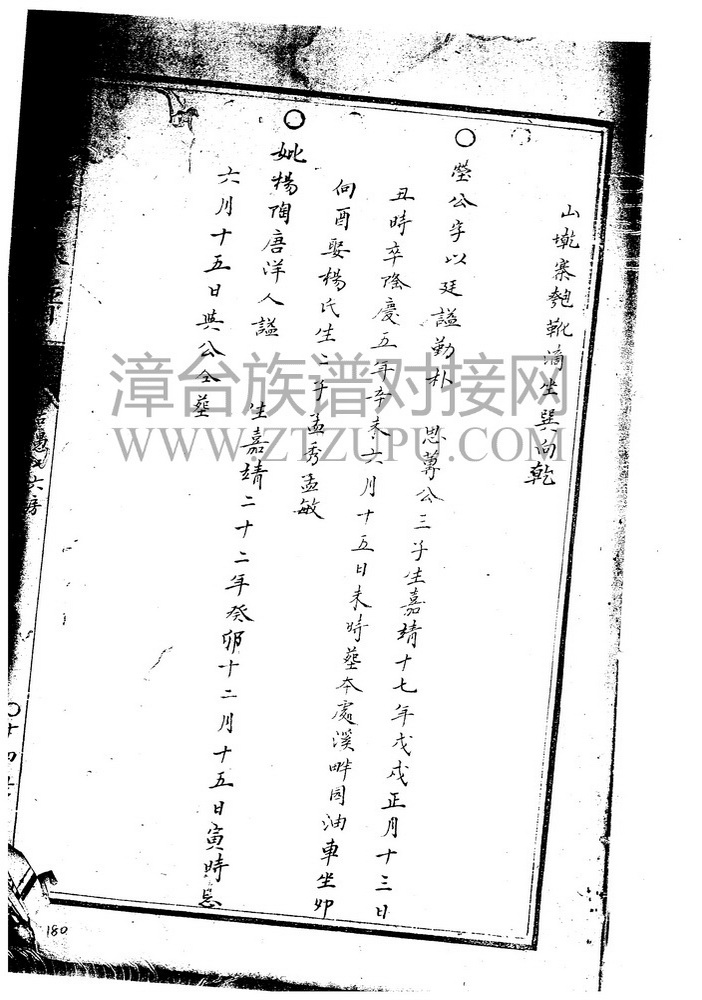 山墘寨匏靴滴坐巽向乾
瑩公字以廷謚勤朴 思萬公三子生嘉靖十七年戊戌正月十三日
丑時卒隆慶五年辛未六月十五日未時塟本處溪畔園油車坐卯
向酉娶楊氏生二子孟秀孟敏
妣楊陶唐洋人謚 生嘉靖二十二年癸卯十二月十五日寅時忌
六月十五日與公仝塟
六房
180
漳台族谱对接网
WWW.ZTZUPU.COM